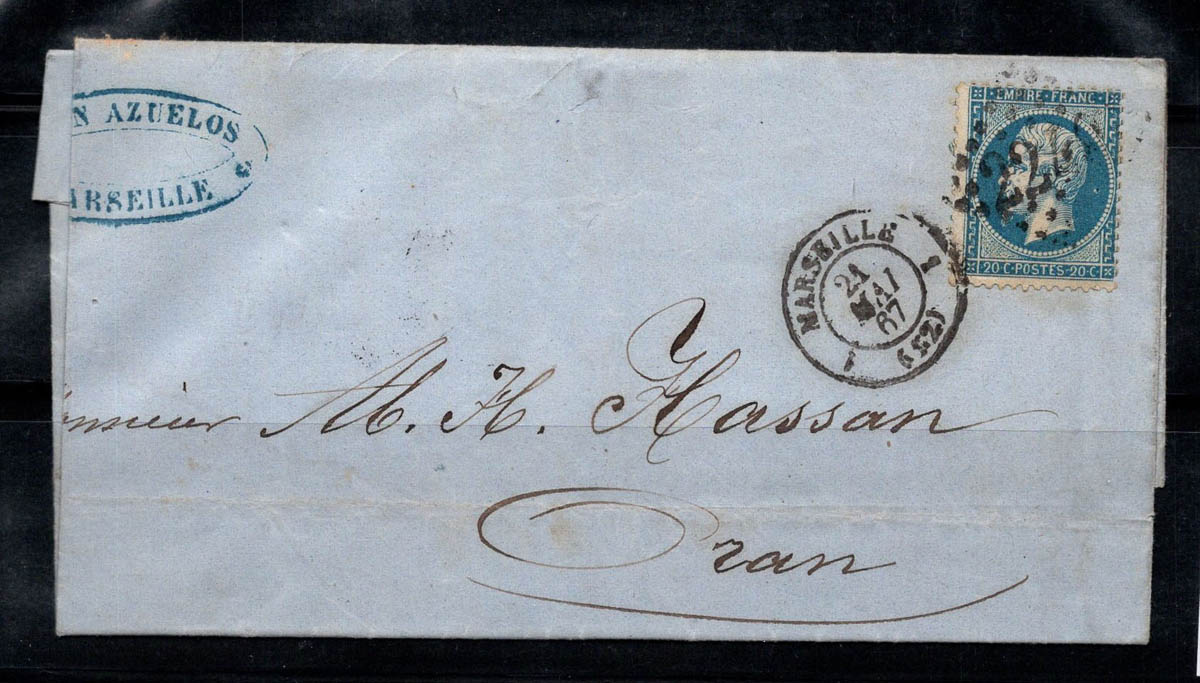 N AZUELOS
ARSEILLE
EMPIRE·FRANC·
20·C·POSTES·20·C·
MARSEILLE
21
MAI
67
1
1
onsieur M. H. Hassan
Oran